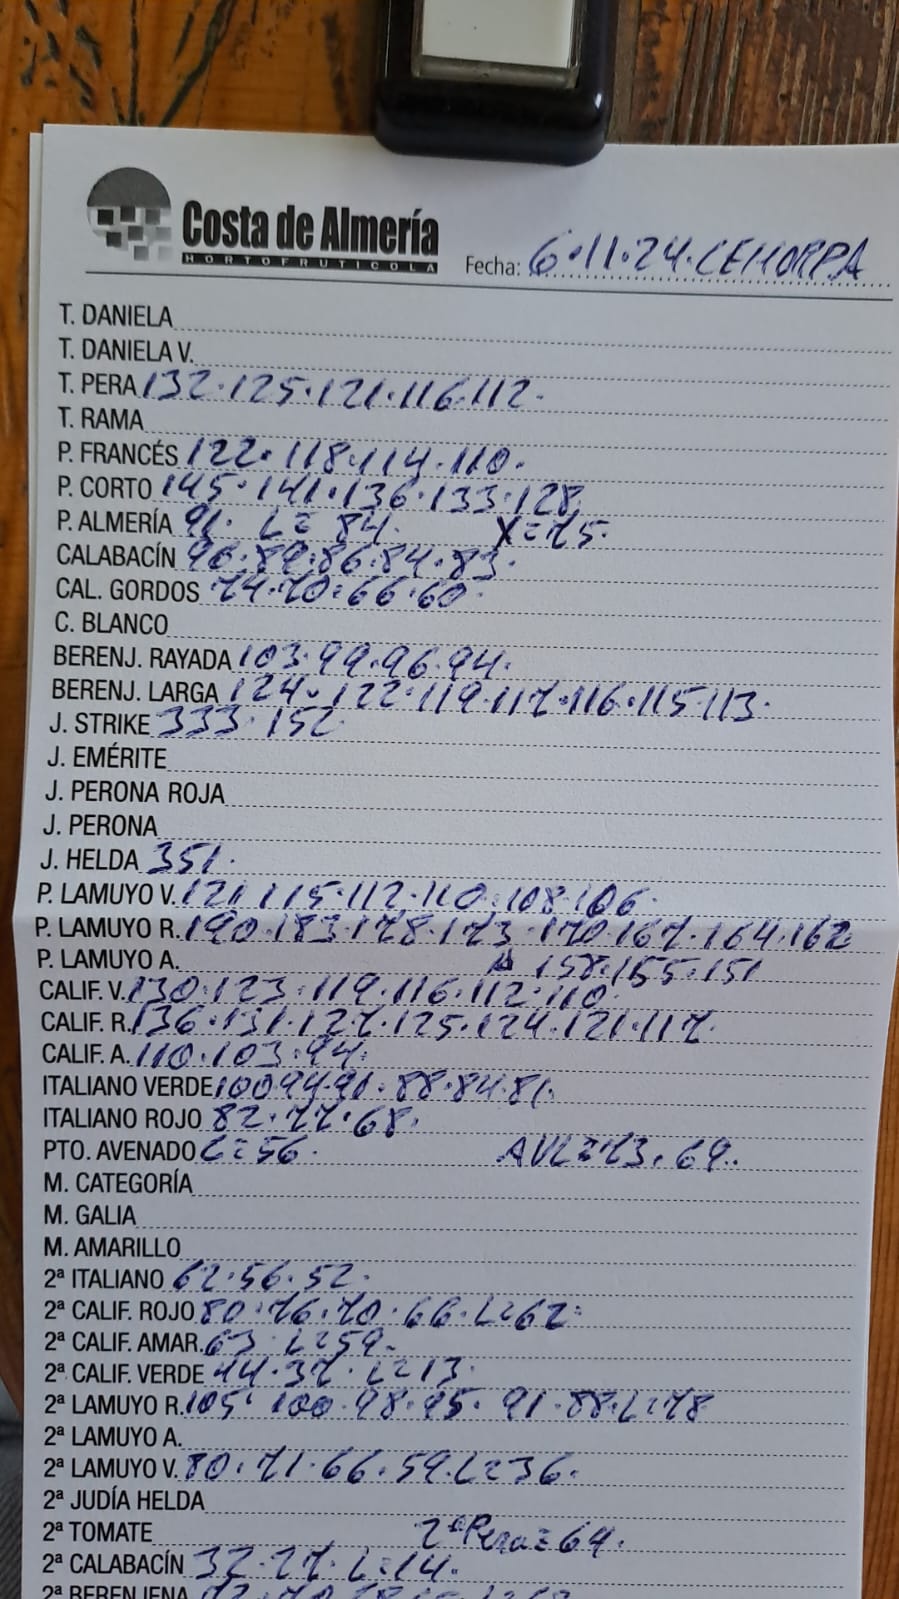 Costa de Almería
HORTOFRUTICOLA
Fecha: 6.11.24. CEHORPA
T. DANIELA
T. DANIELA V.
T. PERA 132.125.121.116.112.
T. RAMA
P. FRANCÉS 122.118.114.110.
P. CORTO 145.141.136.133.128.
P. ALMERÍA 91. L=84. X=75.
CALABACÍN 96.89.86.84.83.
CAL. GORDOS 74.70.66.60.
C. BLANCO
BERENJ. RAYADA 103.99.96.94.
BERENJ. LARGA 124.122.119.117.116.115.113.
J. STRIKE 333.152.
J. EMÉRITE
J. PERONA ROJA
J. PERONA
J. HELDA 351.
P. LAMUYO V. 121.115.112.110.108.106.
P. LAMUYO R. 190.183.178.173.170.167.164.162
P. LAMUYO A. 158.155.151
CALIF. V. 130.123.119.116.112.110.
CALIF. R. 136.131.127.125.124.121.117.
CALIF. A. 110.103.94.
ITALIANO VERDE 100.94.91.88.84.81.
ITALIANO ROJO 82.77.68.
PTO. AVENADO L=56. AVL=73.69.
M. CATEGORÍA
M. GALIA
M. AMARILLO
2ª ITALIANO 62.56.52.
2ª CALIF. ROJO 80.76.70.66.L=62.
2ª CALIF. AMAR. 63. L=59.
2ª CALIF. VERDE 44.37. L=13.
2ª LAMUYO R. 105.100.98.95.91.88.L=78
2ª LAMUYO A.
2ª LAMUYO V. 80.71.66.59.L=36.
2ª JUDÍA HELDA
2ª TOMATE 2ª Pera=64.
2ª CALABACÍN 32.27. L=14.
2ª BERENJENA